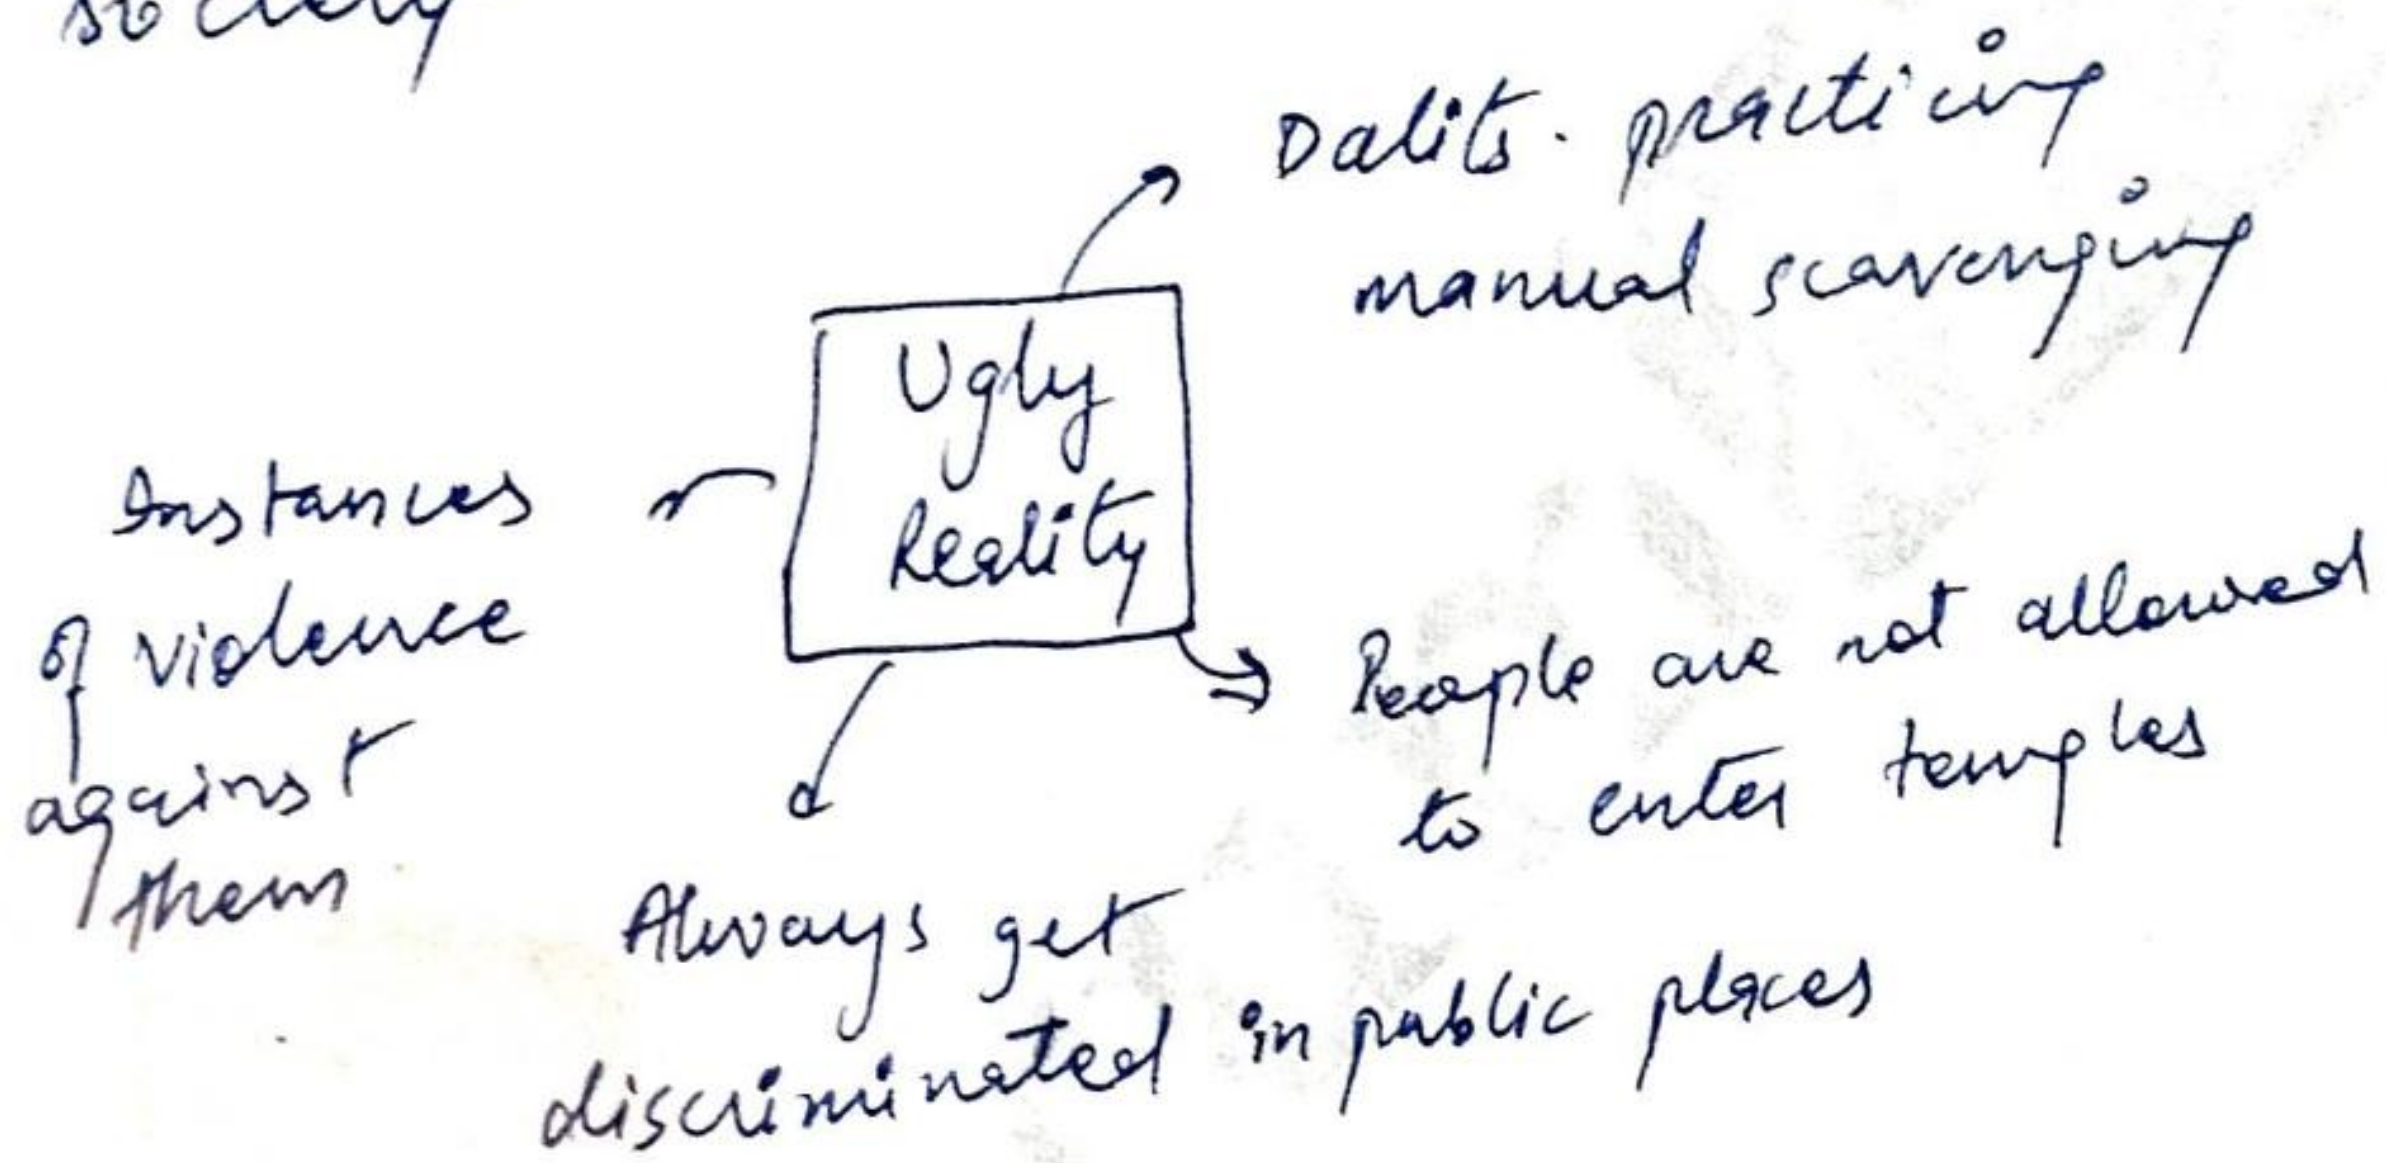 society
Dalits practicing
manual scavenging
Ugly
Reality
Instances
of violence
against
them
People are not allowed
to enter temples
Always get
discriminated in public places